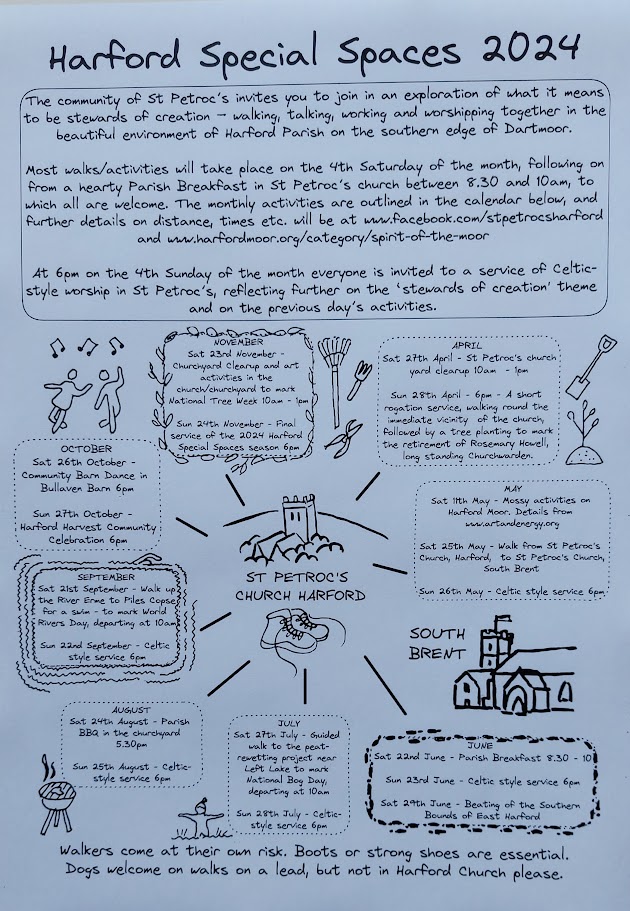 Harford Special Spaces 2024
The community of St Petroc's invites you to join in an exploration of what it means
to be stewards of creation – walking, talking, working and worshipping together in the
beautiful environment of Harford Parish on the southern edge of Dartmoor.
Most walks/activities will take place on the 4th Saturday of the month, following on
from a hearty Parish Breakfast in St Petroc's church between 8.30 and 10am, to
which all are welcome. The monthly activities are outlined in the calendar below, and
further details on distance, times etc. will be at www.facebook.com/stpetrocsharford
and www.harfordmoor.org/category/spirit-of-the-moor
At 6pm on the 4th Sunday of the month everyone is invited to a service of Celtic-
style worship in St Petroc's, reflecting further on the 'stewards of creation' theme
and on the previous day's activities.
NOVEMBER
Sat 23rd November -
Churchyard Clearup and art
activities in the
church/churchyard to mark
National Tree Week 10am - 1pm
Sun 24th November - Final
service of the 2024 Harford
Special Spaces season 6pm
APRIL
Sat 27th April - St Petroc's church
yard clearup 10am - 1pm
Sun 28th April - 6pm - A short
rogation service, walking round the
immediate vicinity of the church,
followed by a tree planting to mark
the retirement of Rosemary Howell,
long standing Churchwarden.
OCTOBER
Sat 26th October -
Community Barn Dance in
Bullaven Barn 6pm
Sun 27th October -
Harford Harvest Community
Celebration 6pm
MAY
Sat 11th May - Mossy activities on
Harford Moor. Details from
www.artandenergy.org
Sat 25th May - Walk from St Petroc's
Church, Harford, to St Petroc's Church,
South Brent
Sun 26th May - Celtic style service 6pm
SEPTEMBER
Sat 21st September - Walk up
the River Erme to Piles Copse
for a swim - to mark World
Rivers Day, departing at 10am
Sun 22nd September - Celtic
style service 6pm
ST PETROC'S
CHURCH HARFORD
SOUTH
BRENT
AUGUST
Sat 24th August - Parish
BBQ in the churchyard
5.30pm
Sun 25th August - Celtic-
style service 6pm
JULY
Sat 27th July - Guided
walk to the peat-
rewetting project near
Left Lake to mark
National Bog Day,
departing at 10am
Sun 28th July - Celtic-
style service 6pm
JUNE
Sat 22nd June - Parish Breakfast 8.30 - 10
Sun 23rd June - Celtic style service 6pm
Sat 29th June - Beating of the Southern
Bounds of East Harford
Walkers come at their own risk. Boots or strong shoes are essential.
Dogs welcome on walks on a lead, but not in Harford Church please.